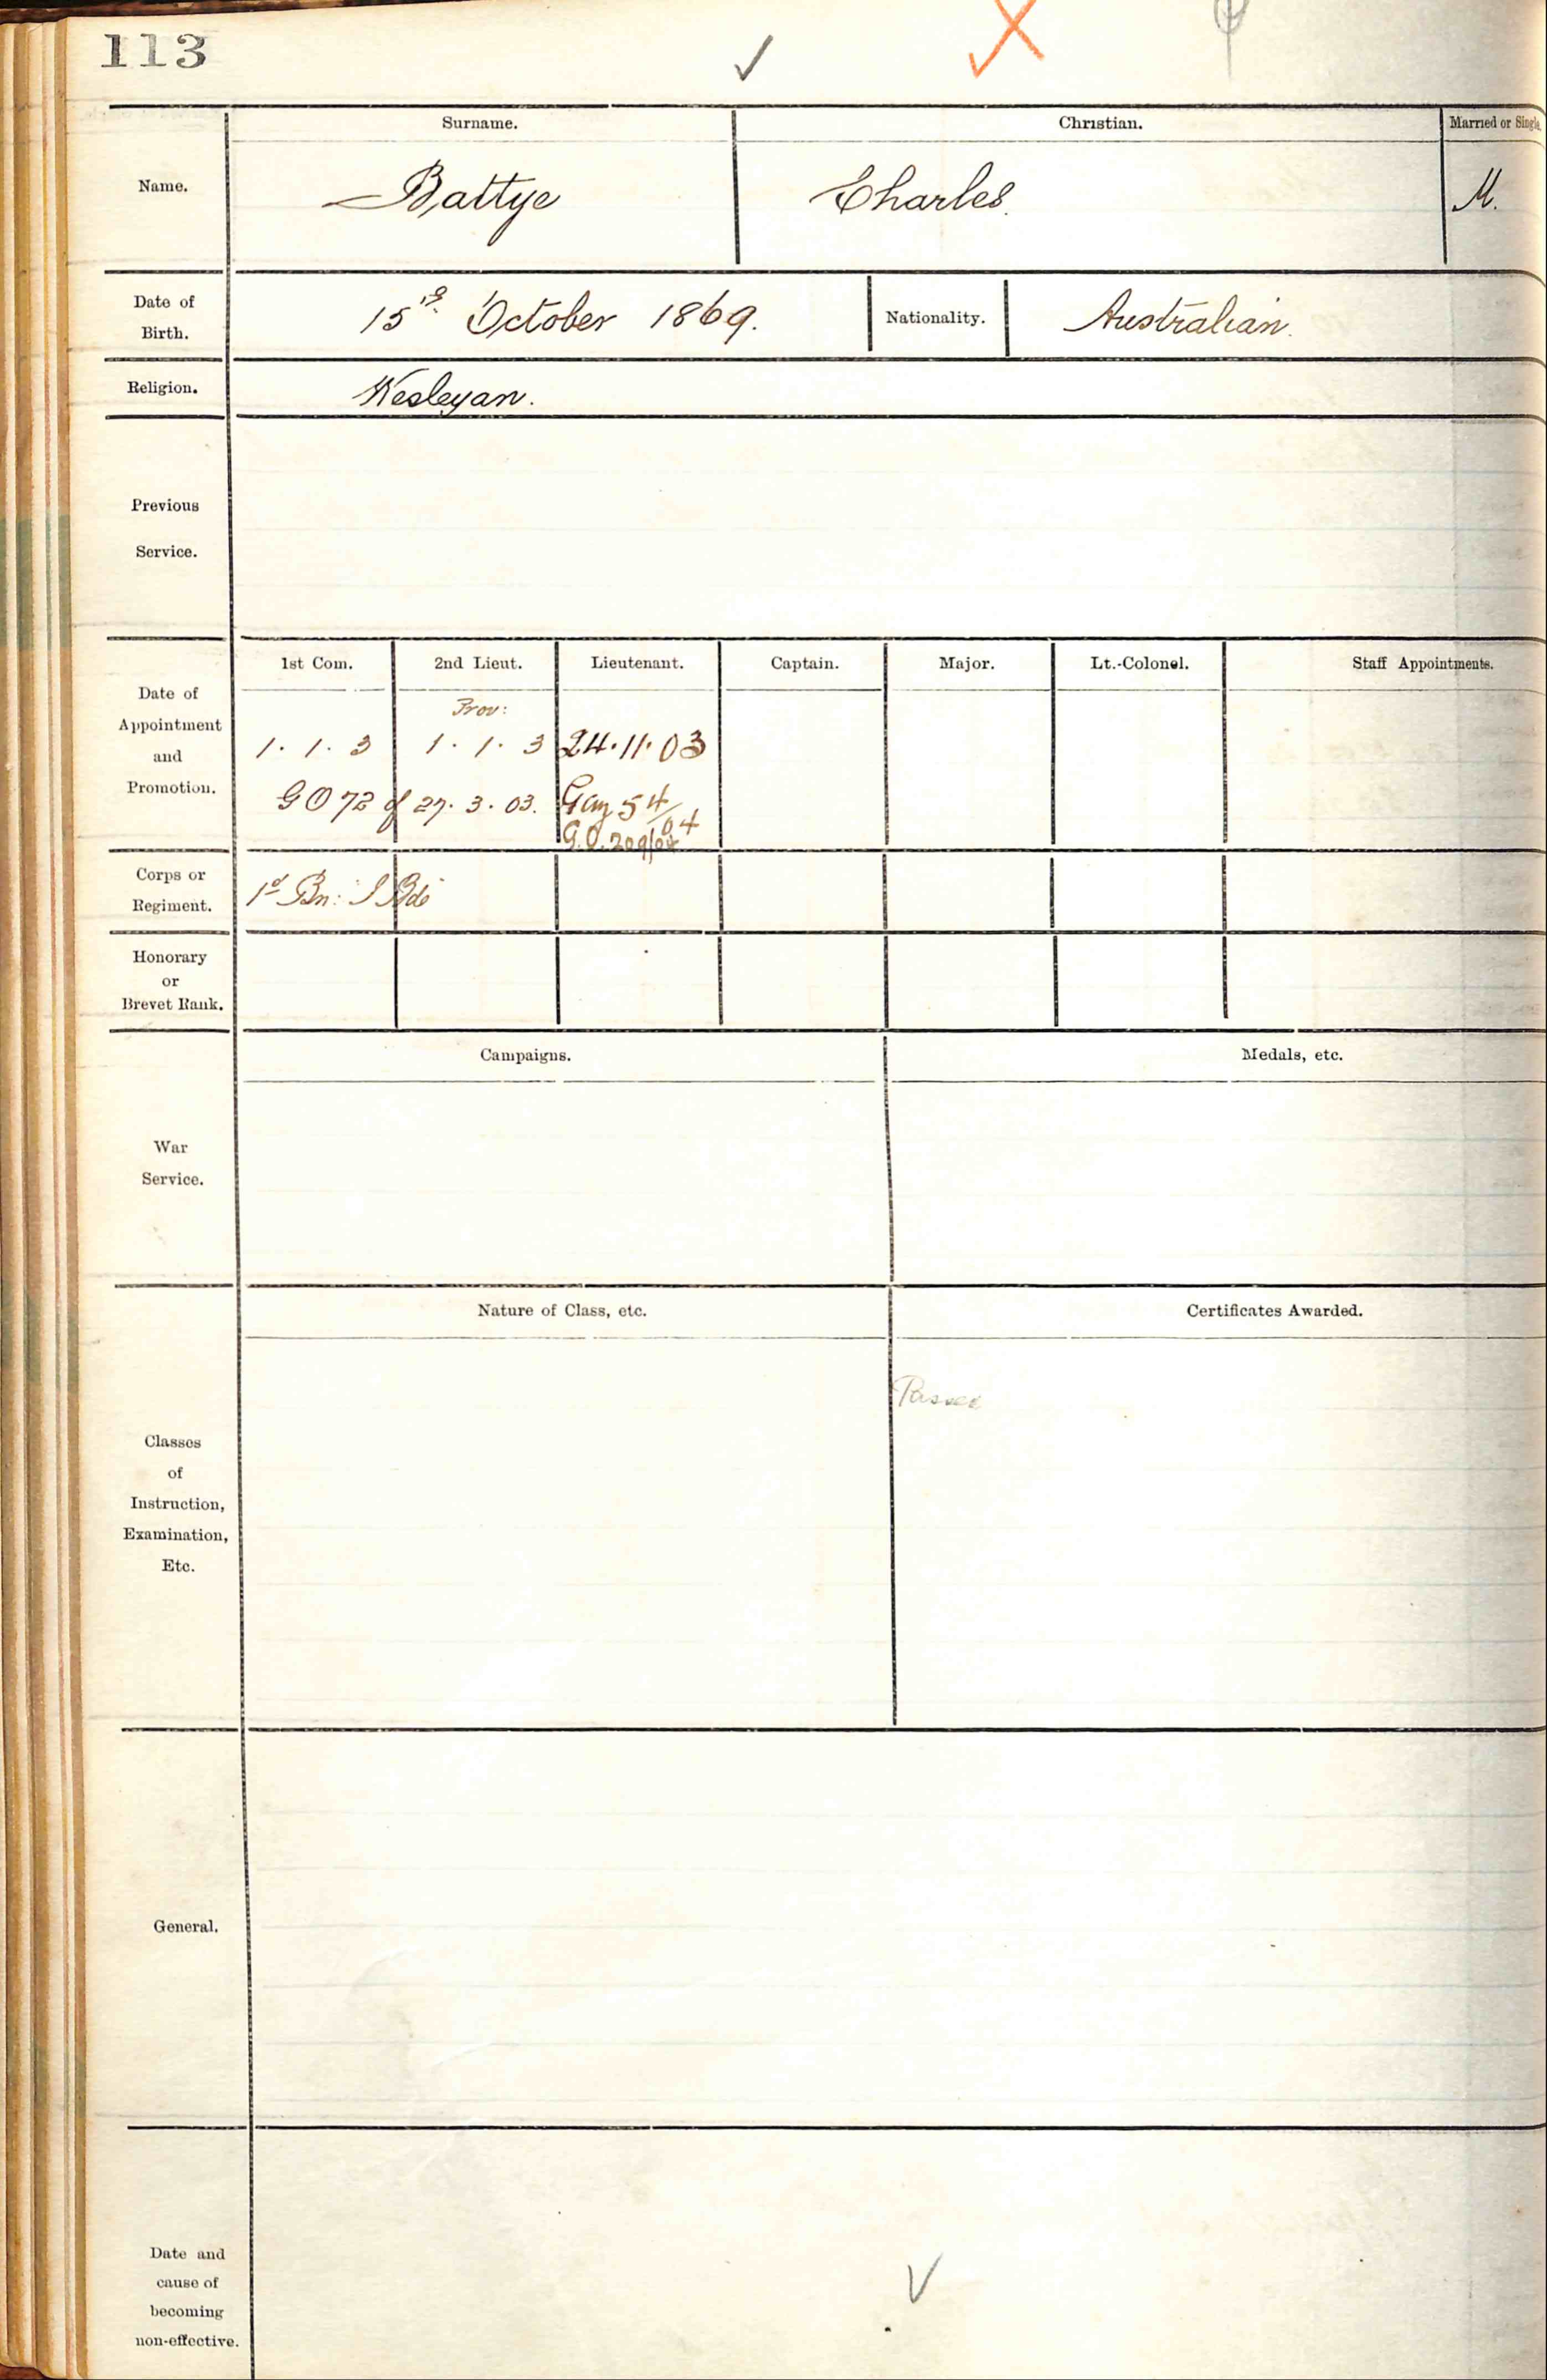 113
Surname. Christian. Married or Single.
Name. Battye Charles. M.
Date of Birth. 15th October 1869. Nationality. Australian.
Religion. Wesleyan.
Previous
Service.
1st Com. 2nd Lieut. Lieutenant. Captain. Major. Lt.-Colonel. Staff Appointments.
Date of
Appointment
and
Promotion.
Prov:
1. 1. 3 1. 1. 3 24.11.03
GO 72 of 27. 3. 03. Gaz 54/04
G.O. 209/04
Corps or
Regiment.
1st Bn:
Honorary
or
Brevet Rank.
Campaigns. Medals, etc.
War
Service.
Nature of Class, etc. Certificates Awarded.
Passed
Classes
of
Instruction,
Examination,
Etc.
General.
Date and
cause of
becoming
non-effective.